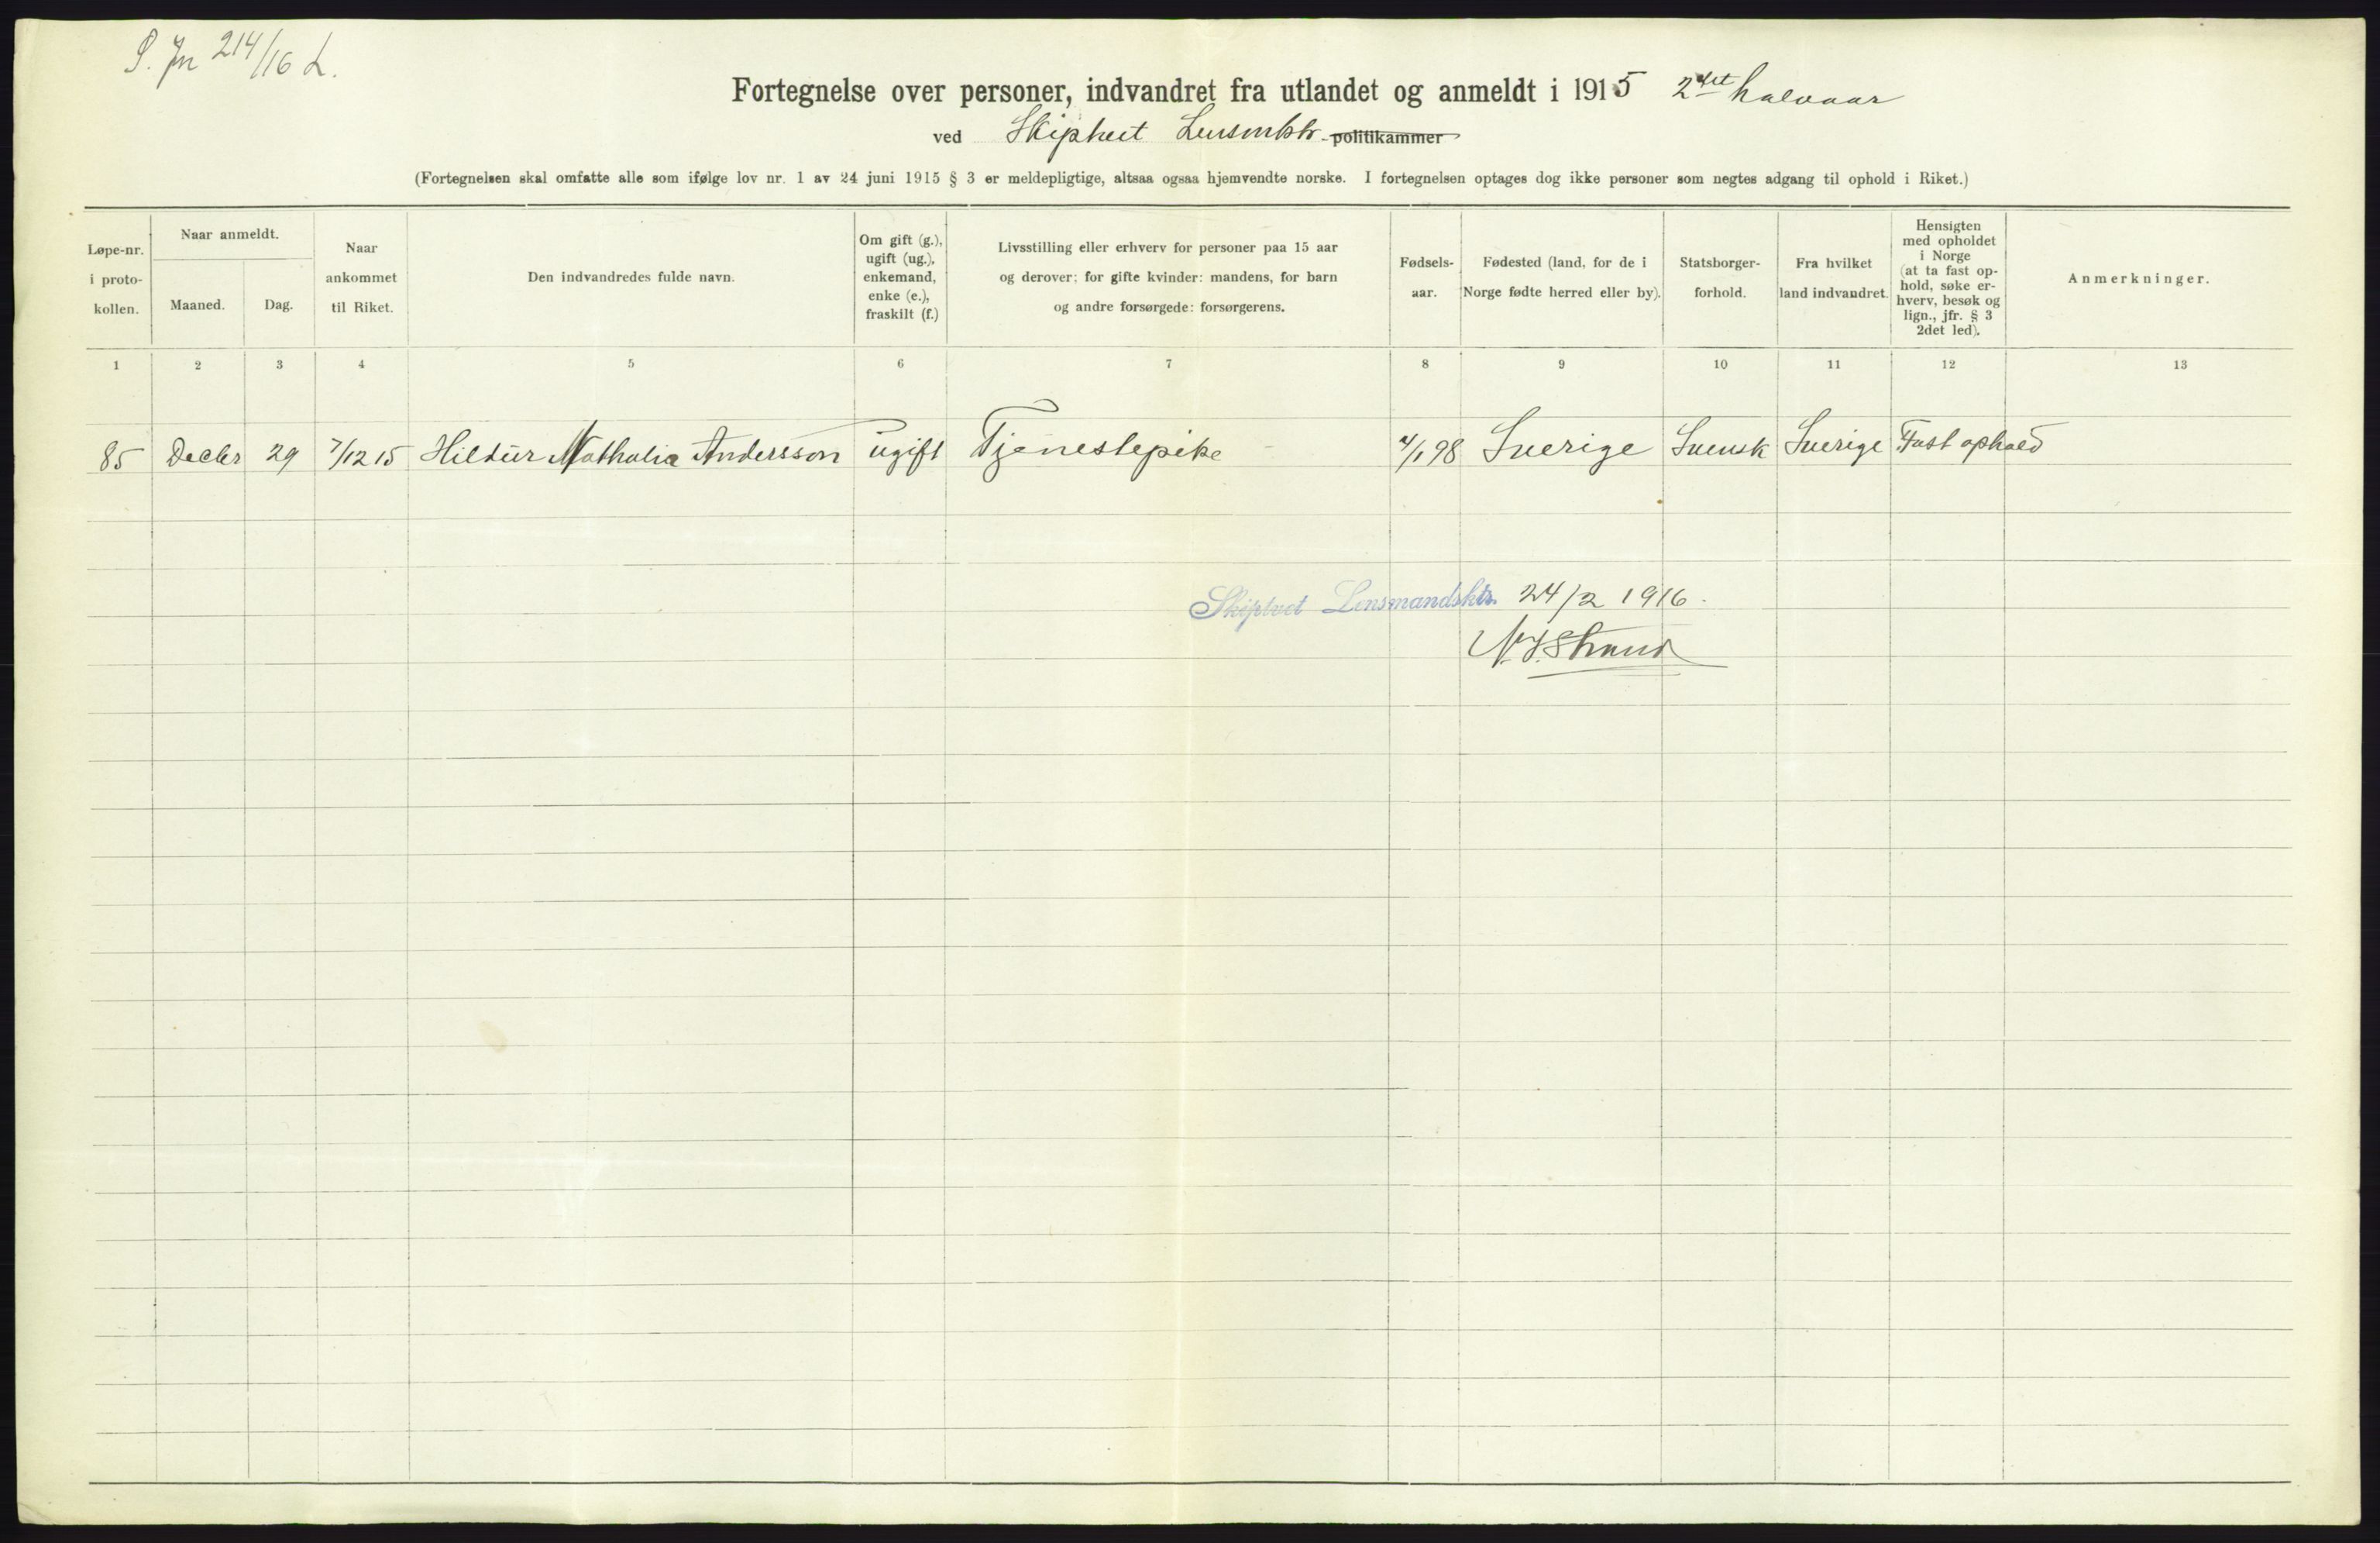 S. Jn 214/16 L.
Fortegnelse over personer, indvandret fra utlandet og anmeldt i 1915 2det halvaar
ved Skiptvet Lensmktr. politikammer
(Fortegnelsen skal omfatte alle som ifølge lov nr. 1 av 24 juni 1915 § 3 er meldepligtige, altsaa ogsaa hjemvendte norske. I fortegnelsen optages dog ikke personer som negtes adgang til ophold i Riket.)
Løpe-nr.
i proto-
kollen.
Naar anmeldt.
Maaned.
Dag.
Naar
ankommet
til Riket.
Den indvandredes fulde navn.
Om gift (g.),
ugift (ug.),
enkemand,
enke (e.),
fraskilt (f.)
Livsstilling eller erhverv for personer paa 15 aar
og derover; for gifte kvinder: mandens, for barn
og andre forsørgede: forsørgerens.
Fødsels-
aar.
Fødested (land, for de i
Norge fødte herred eller by).
Statsborger-
forhold.
Fra hvilket
land indvandret.
Hensigten
med opholdet
i Norge
(at ta fast op-
hold, søke er-
hverv, besøk og
lign., jfr. § 3
2det led).
Anmerkninger.
1 2 3 4 5 6 7 8 9 10 11 12 13
85 Decbr 29 7/12 15 Hildur Nathalia Andersson ugift Tjenestepike 4/1 98 Sverige Svensk Sverige Fast ophold
Skiptvet Lensmandsktr. 24/2 1916.
N. J. Strand